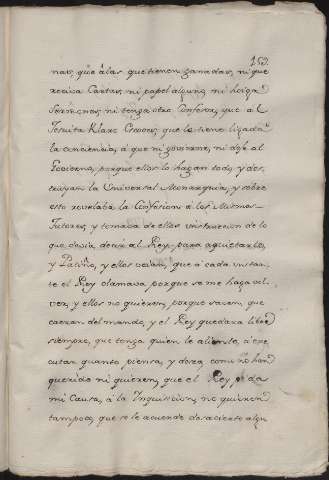 nas, que á las que tienen ganadas, ni que
reciva Cartas, ni papel alguno, ni haiga
ni tenga otro Confesor, que al
Jesuita que le tiene ligada
la conciencia, á que ni govierne, ni dexe al
Govierno, porque ellos lo hagan todo, y des
truyan la Universal Monarquia, y sobre
esto revelaba la Confesion á los Mismos
Tutores, y tomaba de ellos instruccion de lo
que devia decir al Rey, para aquietarlo,
y Patiño, y ellos veian, que á cada instan
te el Rey clamava, porque se me haga vol
ver, y ellos no quieren, porque saven, que
caeran del mando, y el Rey quedara libre
siempre, que tenga quien le aliente, á exe
cutar quanto piensa, y desea, como no han
querido ni quieren, que el Rey
mi Causa, á la Inquisicion, no quieren
tampoco, que se le acuerde desacierto algu